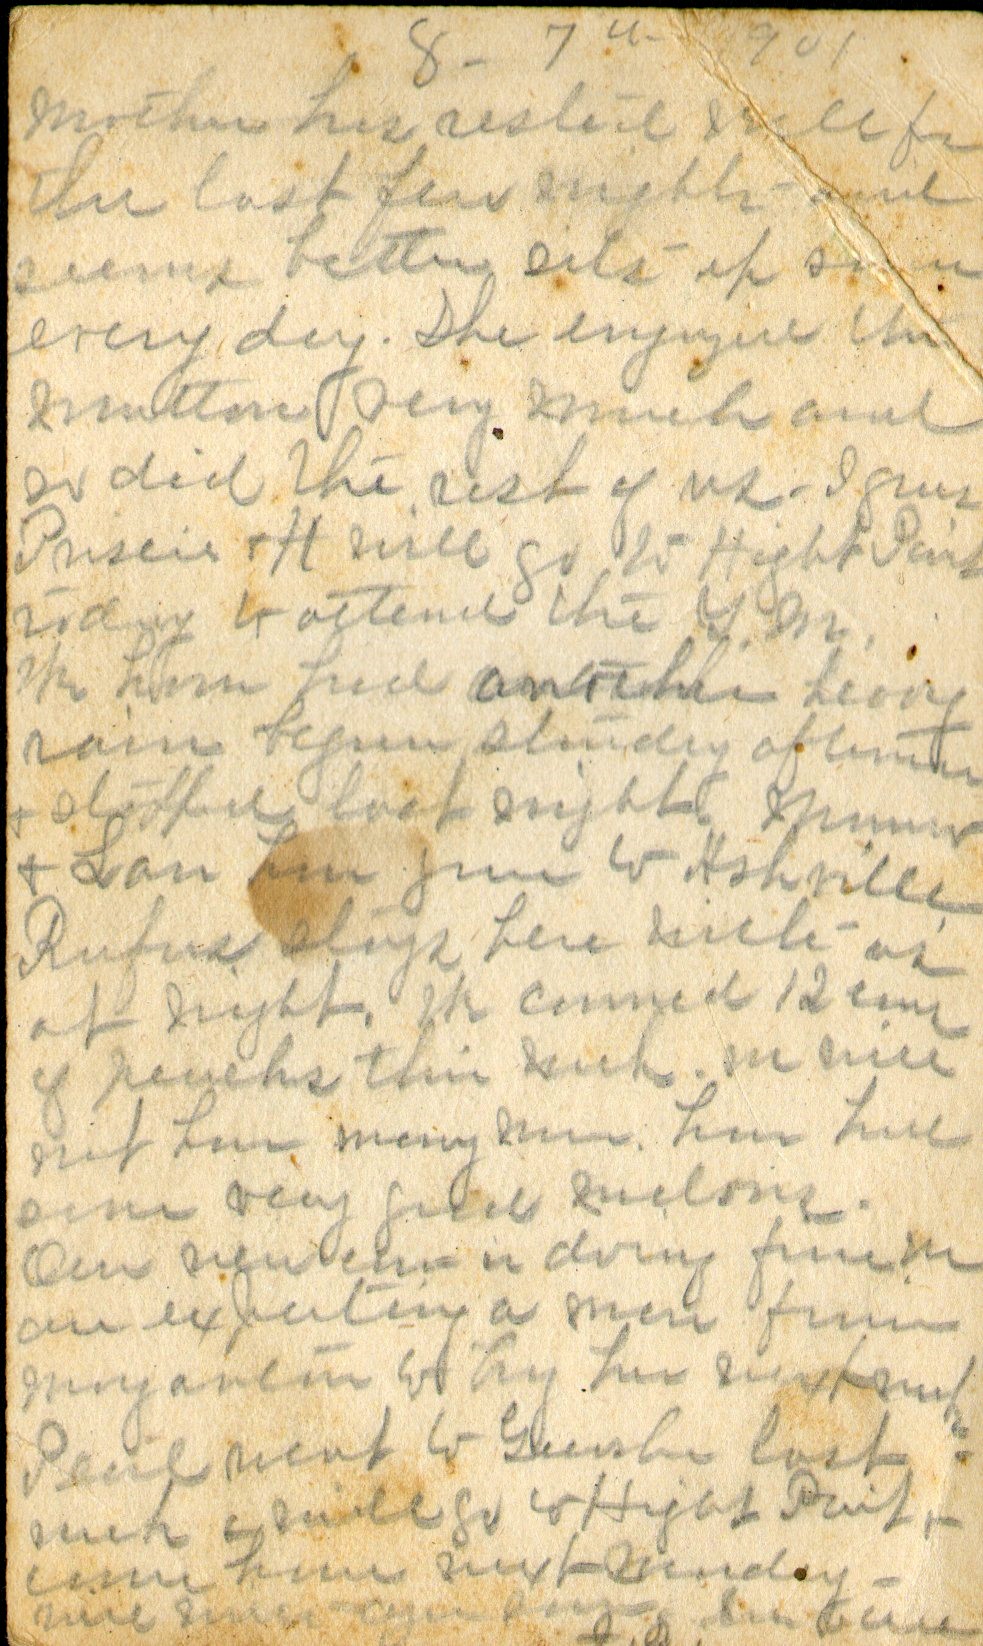 8 - 7th 1901
Mother has rested well for
the last few nights and
seems better sits up some
every day. She enjoyed the
mutton very much and
so did the rest of us - I guess
+ H will go to Hight Point
today to attend the Y. M.
We have had another heavy
rain begun Sunday afternoon
+ stopped last night.
+ have gone to Ashville
Rufus stays here with us
at night. We canned 12 cans
of peaches this week. we will
not have many more. have had
some very good melons.
Our new cow is doing fine we
are expecting a man from
Morganton to buy her next week
Pearl went to Greensboro last
week & will go to Hight Point +
come home next Monday -
will soon